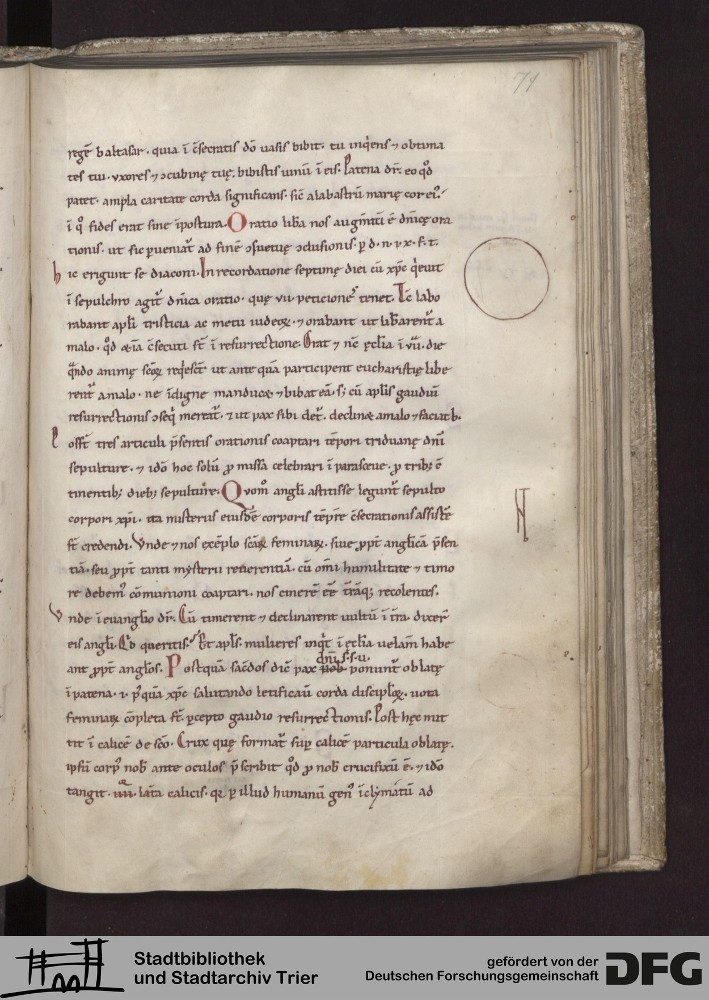 71
regē baltasar. quia ī ɔ̄secratis dō uasis bibit. tu inq̇ens ⁊ obtima
tes tui. uxores ⁊ ɔcubinę tuę. bibistis uinū ī eis. Patena dr̄. eo qd̄
patet. ampla caritate corda significans. sic̄ alabastrū marię cor ei.
ī q̊ fides erat sine īpostura. Oratio libera nos augm̄ti ē dn̄icę ora
tionis. ut sic ꝑueniat᷑ ad finē ɔsuetuę ɔclusionis. ꝑ d. n.
hic erigunt se diaconi. In recordatione septimę diei cū xp̄c q̇euit
ī sepulchro agit᷑ dn̄ica oratio. quę vii. peticionē tenet. Tc̄ labo
rabant apl̄i tristicia ac metu iudeoꝝ. ⁊ orabant ut libarent᷑ a
malo. qd̄ ɔ̄secuti st̄ ī resurrectione. Orat ⁊ nc̄ ęcl̄ia ī vii. die
qn̄do animę sc̄oꝝ req̇esct̄ ut ante quā participent eucharistię libe
rent᷑ a malo. ne īdigne manducē ⁊ bibat eā. s; cū apl̄is gaudiū
resurrectionis ɔseq̇ mereat᷑. ⁊ ut pax sibi det᷑. declinē a malo ⁊ faciat b.
Posst̄ tres articuli p̄sentis orationis coaptari tēpori triduanę dn̄i
sepulturę. ⁊ idō hoc solū ꝓ missa celebrari ī parasceue. ꝓ trib; ɔ̄
tinentib; dieb; sepulturę. Quom̄ angl̄i astitisse legunt᷑ sepulto
corpori xp̄i. ita misteriis eiusdē corporis tēpr̄e ɔ̄secrationis assistē
st̄ credendi. Vnde ⁊ nos exēplo sc̄aꝝ feminaꝝ. siue ꝓpt̄ anglicā p̄sen
tiā. seu ꝓpt̄ tanti mysterii reuerentiā. cū om̄i humilitate ⁊ timo
re debem᷒ cōmunioni coaptari. nos cinerē eē t̄rāq; recolentes.
Vnde ī euanglio dr̄. Cū timerent ⁊ declinarent uultū ī t̄ra. dixer̄
eis angl̄i. Qd̄ queritis. Et apl̄s. mulieres inqt̄ ī ęcl̄ia uelam̄ habe
ant ꝓpt̄ angl̄os. Postquā sac̄dos dic̄ pax dn̄i s. s. u. uob̄ ponunt᷑ oblatę
ī patena. ⁊ p᷒quā xp̄c salutando letificauit corda disciploꝝ. uota
feminaꝝ cōpleta st̄ ꝑcepto gaudio resurrectionis. Post hęc mit
tit ī calicē de sc̄o. Crux quę format᷑ suꝑ calicē particula oblatę.
ipsū corp᷒ nob̄ ante oculos p̄scribit qd̄ ꝓ nob̄ crucifixū ē. ⁊ idō
tangit. iiii. lat̄a calicis. qr̄ ꝑ illud humanū gen᷒ ī clymatū ad
Stadtbibliothek
und Stadtarchiv Trier
gefördert von der
Deutschen Forschungsgemeinschaft
DFG